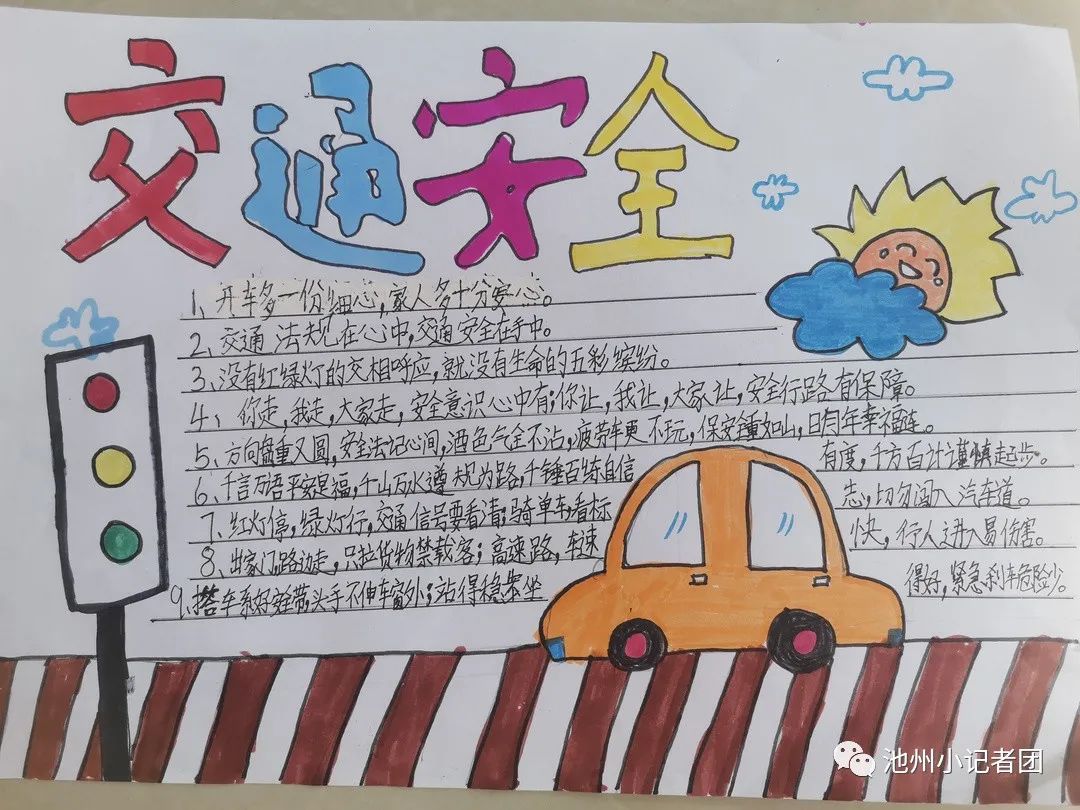 交通安全
1、开车多一份细心,家人多十分安心。
2、交通法规在心中,交通安全在手中。
3、没有红绿灯的交相呼应,就没有生命的五彩缤纷。
4、你走,我走,大家走,安全意识心中有;你让,我让,大家让,安全行路有保障。
5、方向盘重又圆,安全法记心间,酒色气全不沾,疲劳车更不玩,保安全重如山,日月年幸福链。
6、千言万语平安是福,千山万水遵规为路,千锤百炼自信有度,千方百计谨慎起步。
7、红灯停,绿灯行,交通信号要看清;骑单车,看标志,切勿闯入汽车道。
8、出家门,路边走,只拉货物禁载客;高速路,车速快,行人进入易伤害。
9、搭车系好安全带,头手不伸车窗外;站得稳坐得好,紧急刹车危险少。
池州小记者团